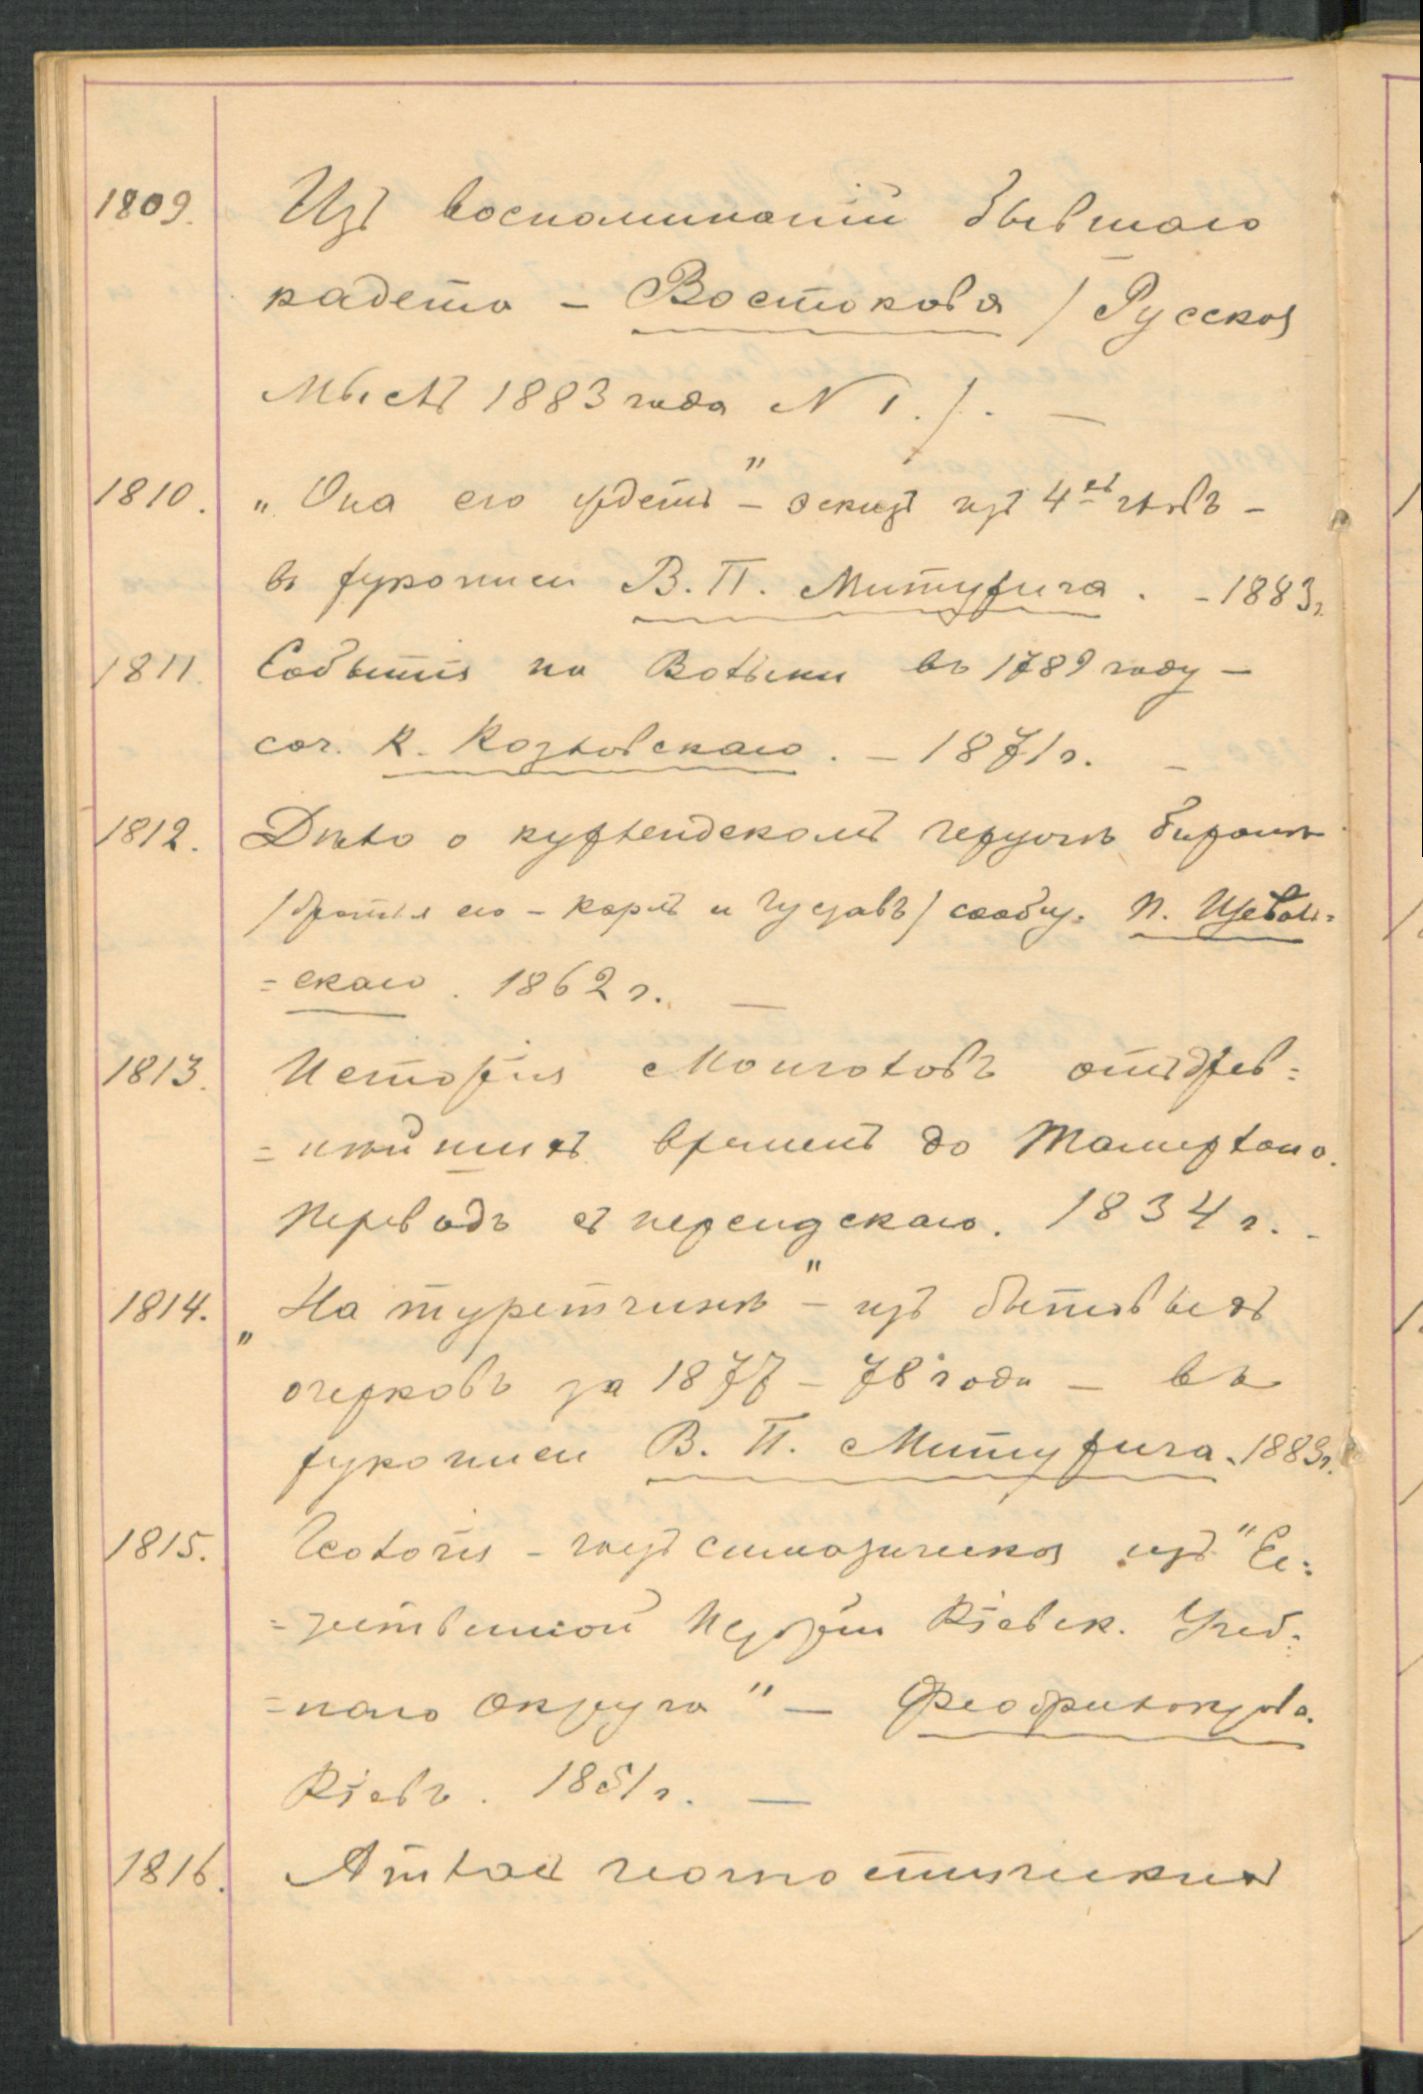 1809. Изъ воспоминаній бывшаго
кадета – Востокова / Русская
Мысль 1883 года N 1./. —
1810. „Она его ждетъ" – эскизъ изъ 4ехъ главъ –
въ рукописи В. П. Митурича. – 1883г.
1811. Событія на Волыни въ 1789 году –
соч. К. Козловскаго. – 1871г. –
1812. Дѣло о курляндскомъ герцогѣ Биронѣ
/братья его – Карлъ и Густавъ/ сообщ. П. Щеваль=
=скаго. 1862 г. —
1813. Исторія Монголовъ отъ древ=
=нѣйшихъ временъ до Тамерлана.
Переводъ съ персидскаго. 1834 г. –
1814. „На туретчинѣ" – изъ бытовыхъ
очерковъ за 1877 – 78 годы – въ
рукописи В. П. Митурича. 1883г.
1815. Геологія – изъ "Ес=
=тественной Исторіи Кіевск. Учеб=
=наго Округа" – Феофилактова.
Кіевъ. 1851г. —
1816. Атласъ геогностическихъ